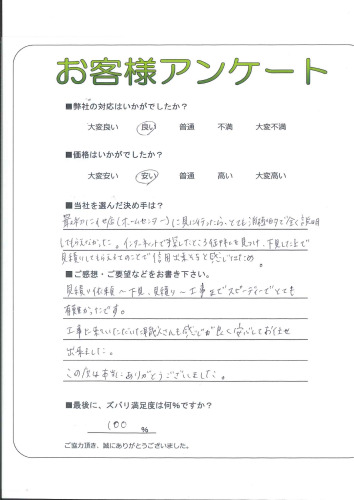 お客様アンケート
■弊社の対応はいかがでしたか？
大変良い 良い 普通 不満 大変不満
■価格はいかがでしたか？
大変安い 安い 普通 高い 大変高い
■当社を選んだ決め手は？
最初に (ホームセンター)に見に行ったら、とても消極的で全く説明
してもらえなかった。インターネットで探していたところ 見つけ、下見した上で
見積りしてもらえるとのことで信用出来そうと感じたため。
■ご感想・ご要望などをお書き下さい。
見積り依頼～下見、見積り～工事までスピーディーでとても
有難かったです。
工事に来ていただいた職人さんも感じが良く安心してお任せ
出来ました。
この度は本当にありがとうございました。
■最後に、ズバリ満足度は何%ですか？
100 %
ご協力頂き、誠にありがとうございました。